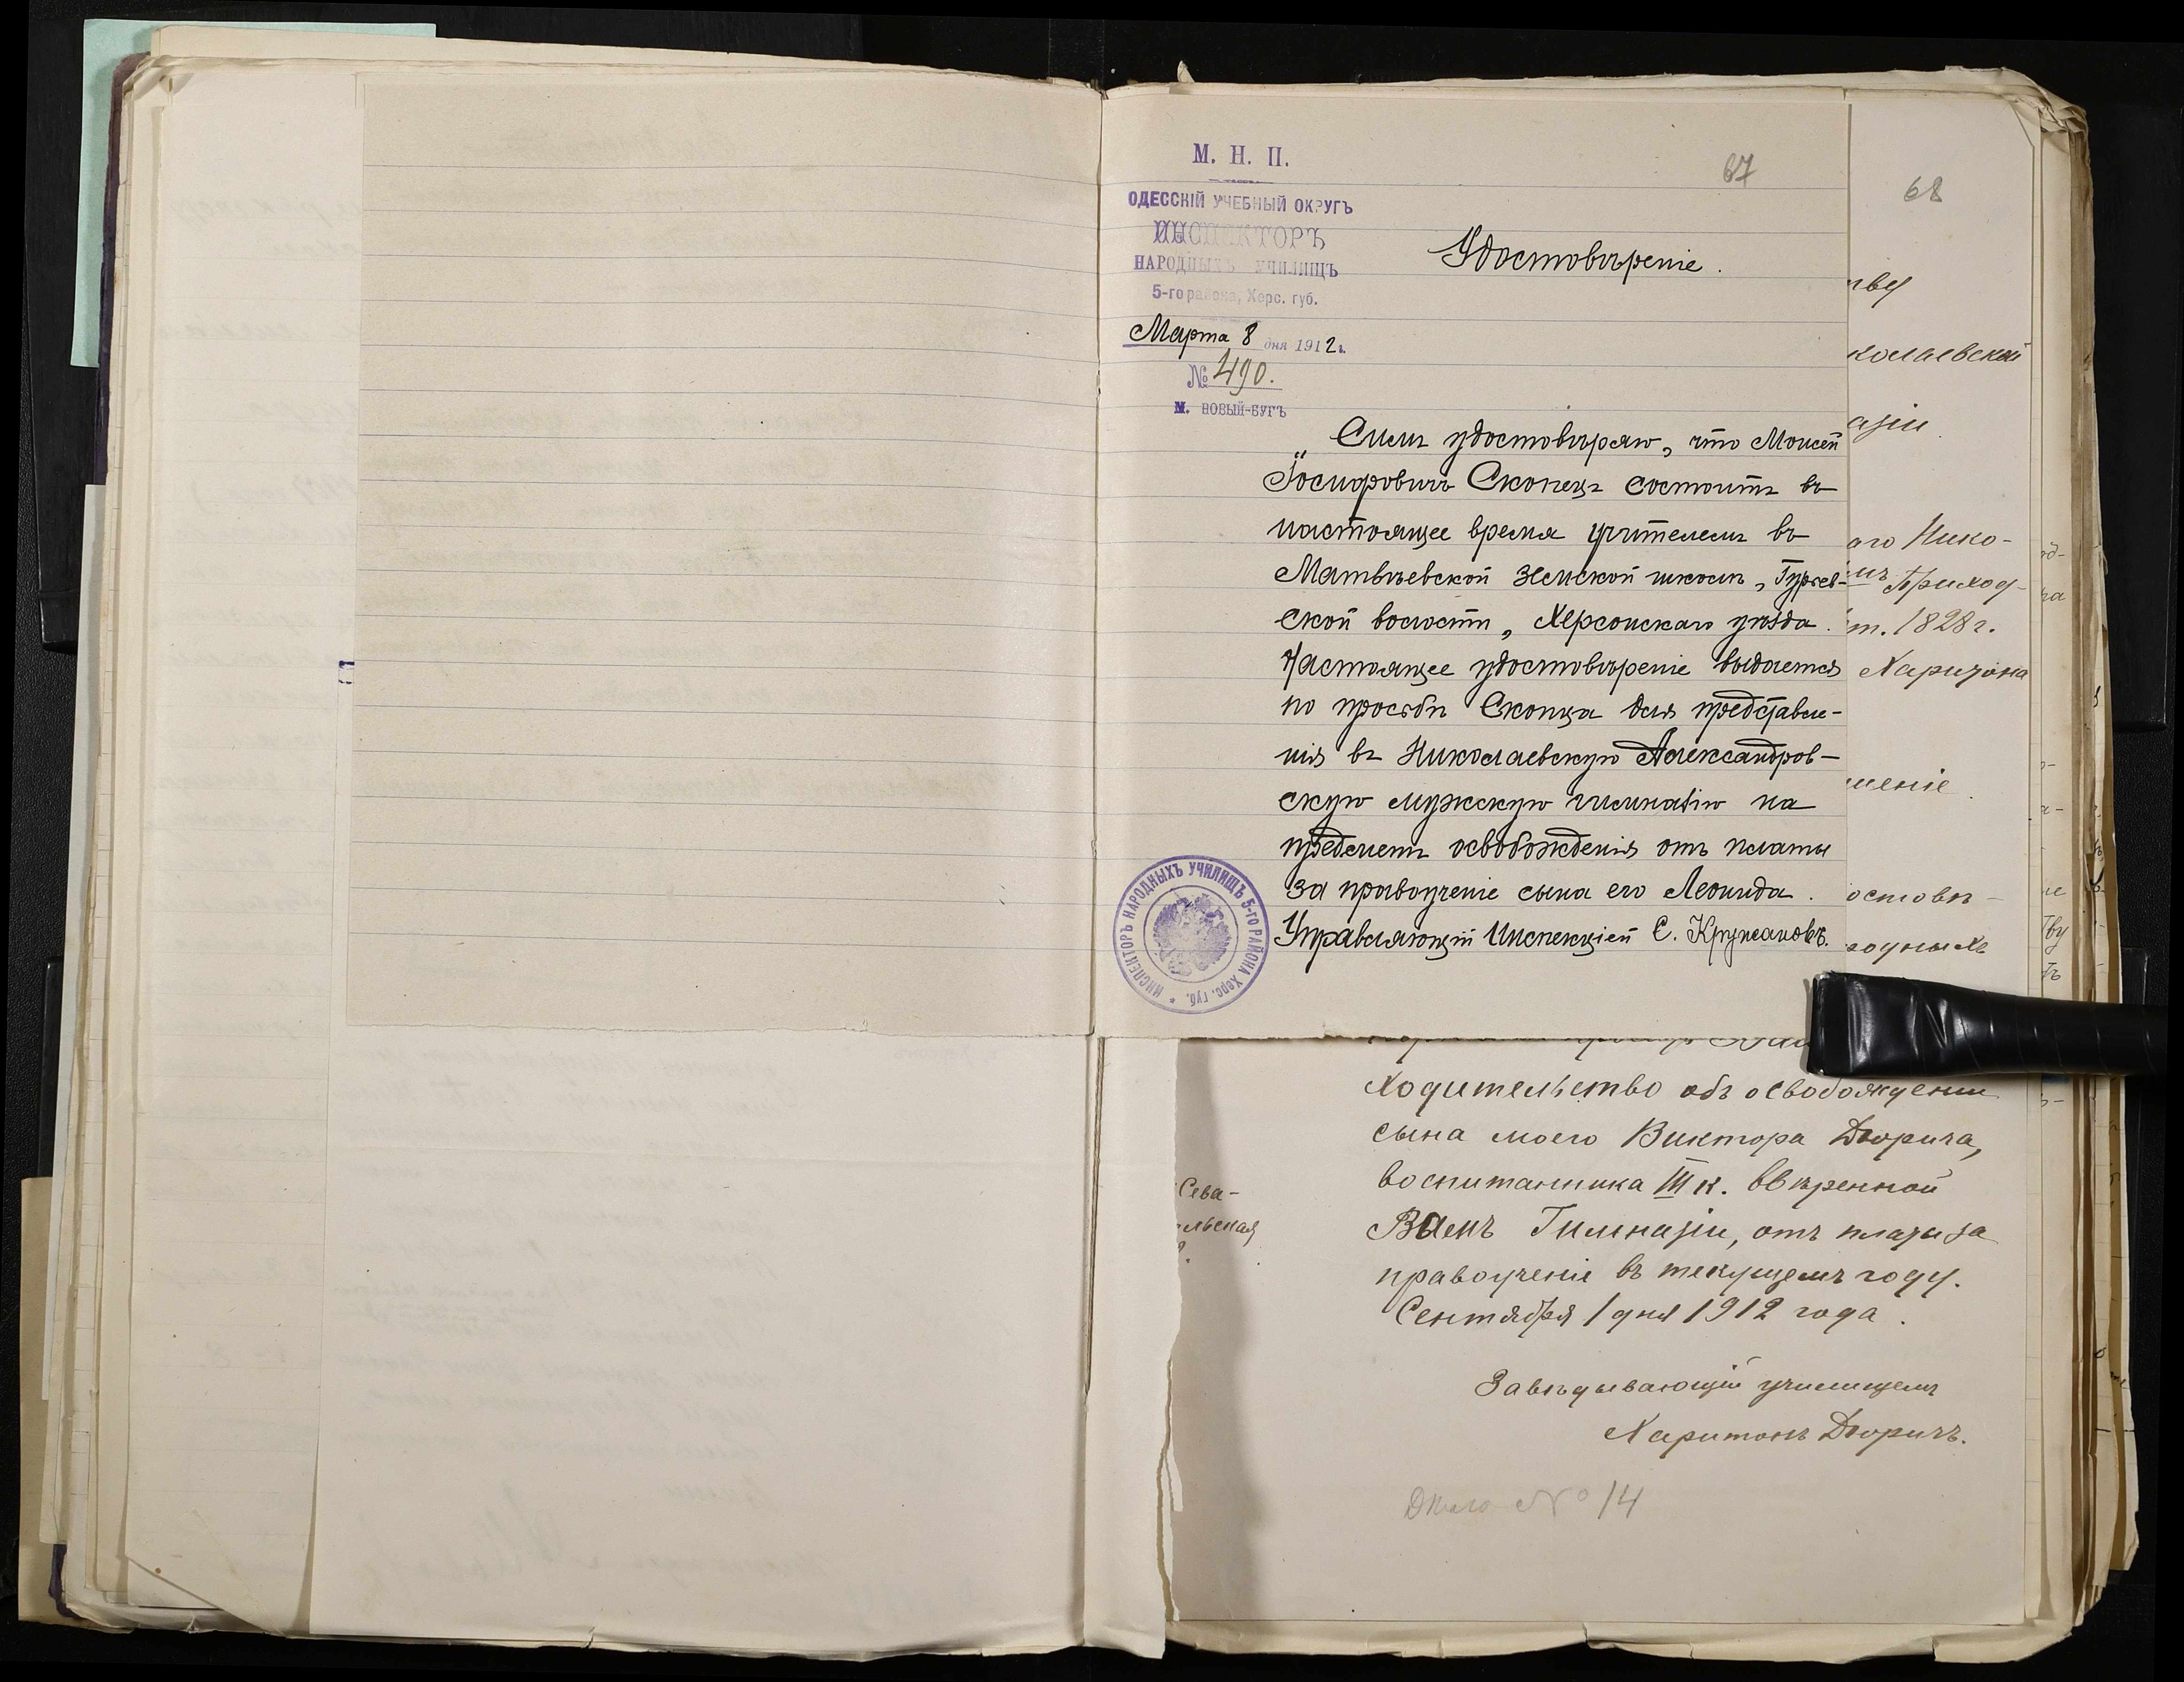 М. Н. П.
ОДЕССКІЙ УЧЕБНЫЙ ОКРУГЪ
ИНСПЕКТОРЪ
НАРОДНЫХЪ УЧИЛИЩЪ
5-го района, Херс. губ.
Марта 8 дня 1912 г.
№ 490.
М. НОВЫЙ-БУГЪ
67
Удостовѣреніе.
Симъ удостовѣряю, что Моисей
Іосифовичъ Скопецъ состоитъ въ
настоящее время учителемъ въ
Матвѣевской земской школѣ, Гурьев-
ской волости, Херсонскаго уѣзда.
Настоящее удостовѣреніе выдается
по просьбѣ Скопца для представле-
нія въ Николаевскую Александров-
скую мужскую гимназію на
предметъ освобожденія отъ платы
за правоученіе сына его Леонида.
Управляющій Инспекціей С.
ИНСПЕКТОРЪ НАРОДНЫХЪ УЧИЛИЩЪ 5-ГО РАЙОНА Херс. губ. *
68
тву
колаевской
азіи
аго Нико-
имъ Приход-
т. 1828 г.
Харитона
шеніе
остовѣ-
родныхъ
ходительство объ освобожденіи
сына моего Виктора Дюрича,
воспитанника III к. ввѣренной
Вамъ Гимназіи, отъ платы за
правоученіе въ текущемъ году.
Сентября 1 дня 1912 года.
Сева-
льская
Завѣдывающій училищемъ
Харитонъ Дюричъ.
Дѣло № 14